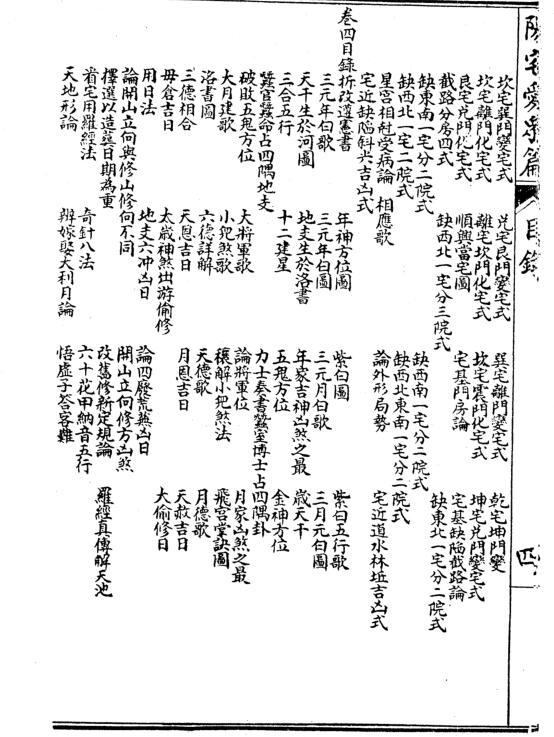 陽宅愛眾篇 目錄 四
坎宅巽門變宅式 兌宅艮門變宅式 巽宅離門變宅式 乾宅坤門變
坎宅離門化宅式 離宅坎門化宅式 坎宅震門化宅式 坤宅兌門變宅式
艮宅兌門化宅式 順興富宅圖 宅基門房論 宅基缺陷截路論
截路分房四式 缺西北一宅分三院式 缺西南一宅分二院式 缺東北一宅分二院式
缺東南一宅分二院式
缺西北一宅二院式 缺西北東南一宅分二院式
星宮相尅受病論 相應歌 論外形局勢 宅近道水林坵吉凶式
宅近缺陷斜尖吉凶式
卷四目錄 折改遵憲書
三元年白歌 年神方位圖 紫白圖 紫白五行歌
天干生於河圖 三元年白圖 三元月白歌 三月元白圖
三合五行 地支生於洛書 年家吉神凶煞之最 歲天干
蠶官蠶命占四隅地支 十二建星 五鬼方位 金神方位
破敗五鬼方位 力士奏書蠶室博士占四隅卦
大月建歌 大將軍歌 論將軍位 月家凶煞之最
洛書圖 小兒煞歌 穰解小兒煞法 飛宮掌訣圖
三德相合 六德詳解 天德歌 月德歌
母倉吉日 天恩吉日 月恩吉日 天赦吉日
用日法 太歲神煞出游偷修 大偷修日
論開山立向與修山修向不同 地支六冲凶日 論四廢荒蕪凶日
擇選以造葬日期為重 開山立向修方凶煞
看宅用羅經法 奇針八法 改舊修新定規論 羅經真傳解天池
天地形論 辨嫁娶大利月論 六十花甲納音五行
悟虛子答客難